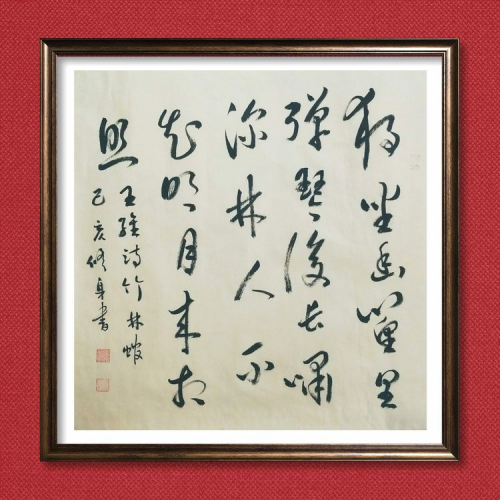 独坐幽篁里
弹琴复长啸
深林人不
知明月来相
照
王维诗竹林
己亥修身书